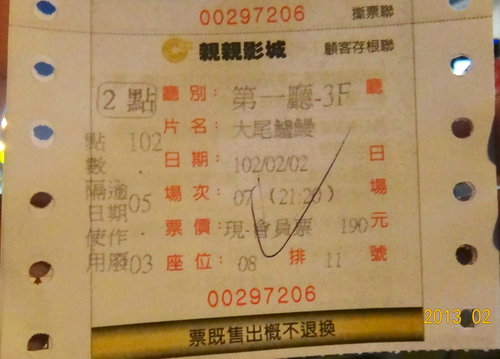 00297206 撕票聯
親親影城 顧客存根聯
2 點 廳別：第一廳-3F 廳
片名：大尾鱸鰻
日期：102/02/02 日
場次：07 (21:20) 場
票價：現-會員票 190 元
座位：08 排 11 號
點數 102.05.03
隔逾日期使作用廢
00297206
票既售出概不退換
2013 02